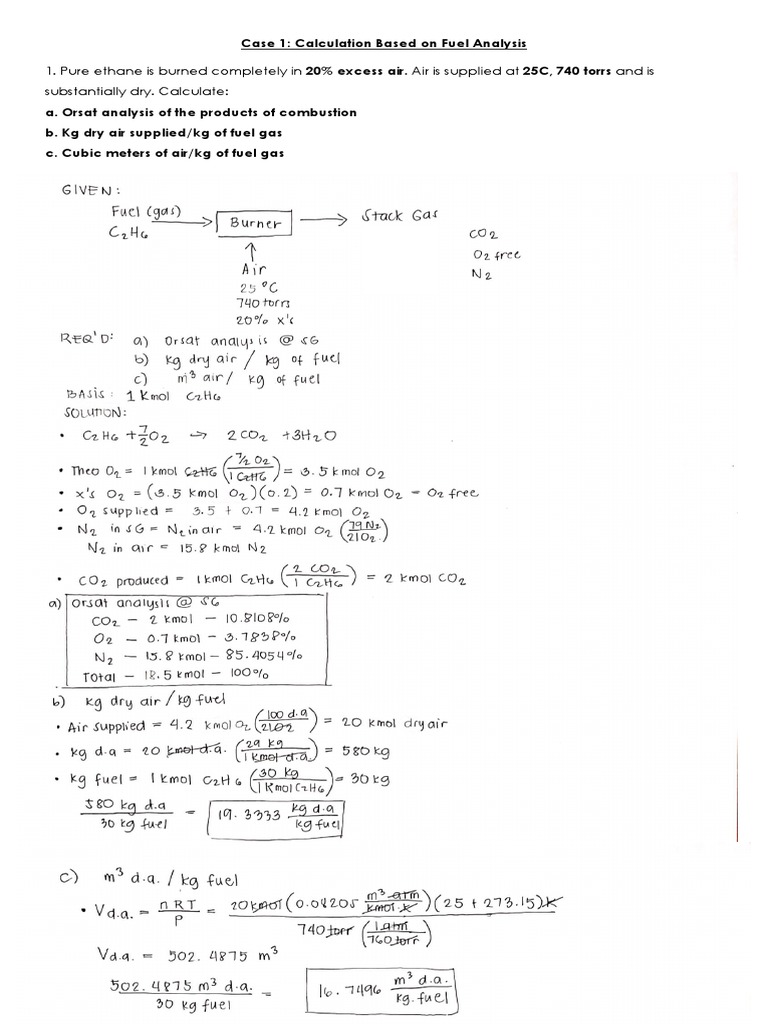 Case 1: Calculation Based on Fuel Analysis
1. Pure ethane is burned completely in 20% excess air. Air is supplied at 25C, 740 torrs and is
substantially dry. Calculate:
a. Orsat analysis of the products of combustion
b. Kg dry air supplied/kg of fuel gas
c. Cubic meters of air/kg of fuel gas
GIVEN:
Fuel (gas)
C2H6
Burner
Stack Gas
CO2
O2 free
N2
Air
25 °C
740 torrs
20% x's
REQ'D: a) Orsat analysis @ SG
b) kg dry air / kg of fuel
c) m³ air / kg of fuel
BASIS: 1 Kmol C2H6
SOLUTION:
• C2H6 + 7/2 O2 → 2CO2 + 3H2O
• Theo O2 = 1 kmol C2H6 (7/2 O2 / 1 C2H6) = 3.5 kmol O2
• x's O2 = (3.5 kmol O2)(0.2) = 0.7 kmol O2 - O2 free
• O2 supplied = 3.5 + 0.7 = 4.2 kmol O2
• N2 in SG = N2 in air = 4.2 kmol O2 (79 N2 / 21 O2)
N2 in air = 15.8 kmol N2
• CO2 produced = 1 kmol C2H6 (2 CO2 / 1 C2H6) = 2 kmol CO2
a) Orsat analysis @ SG
CO2 - 2 kmol - 10.8108%
O2 - 0.7 kmol - 3.7838%
N2 - 15.8 kmol - 85.4054%
Total - 18.5 kmol - 100%
b) kg dry air / kg fuel
• Air supplied = 4.2 kmol O2 (100 d.a / 21 O2) = 20 kmol dry air
• kg d.a = 20 kmol d.a. (29 kg / 1 kmol d.a) = 580 kg
• kg fuel = 1 kmol C2H6 (30 kg / 1 Kmol C2H6) = 30 kg
580 kg d.a / 30 kg fuel = 19.3333 kg d.a / kg fuel
c) m³ d.a. / kg fuel
• Vd.a. = nRT / P = 20 kmol (0.08205 m³ atm / kmol K)(25 + 273.15) K / 740 torr (1 atm / 760 torr)
Vd.a. = 502.4875 m³
502.4875 m³ d.a. / 30 kg fuel = 16.7496 m³ d.a. / kg. fuel